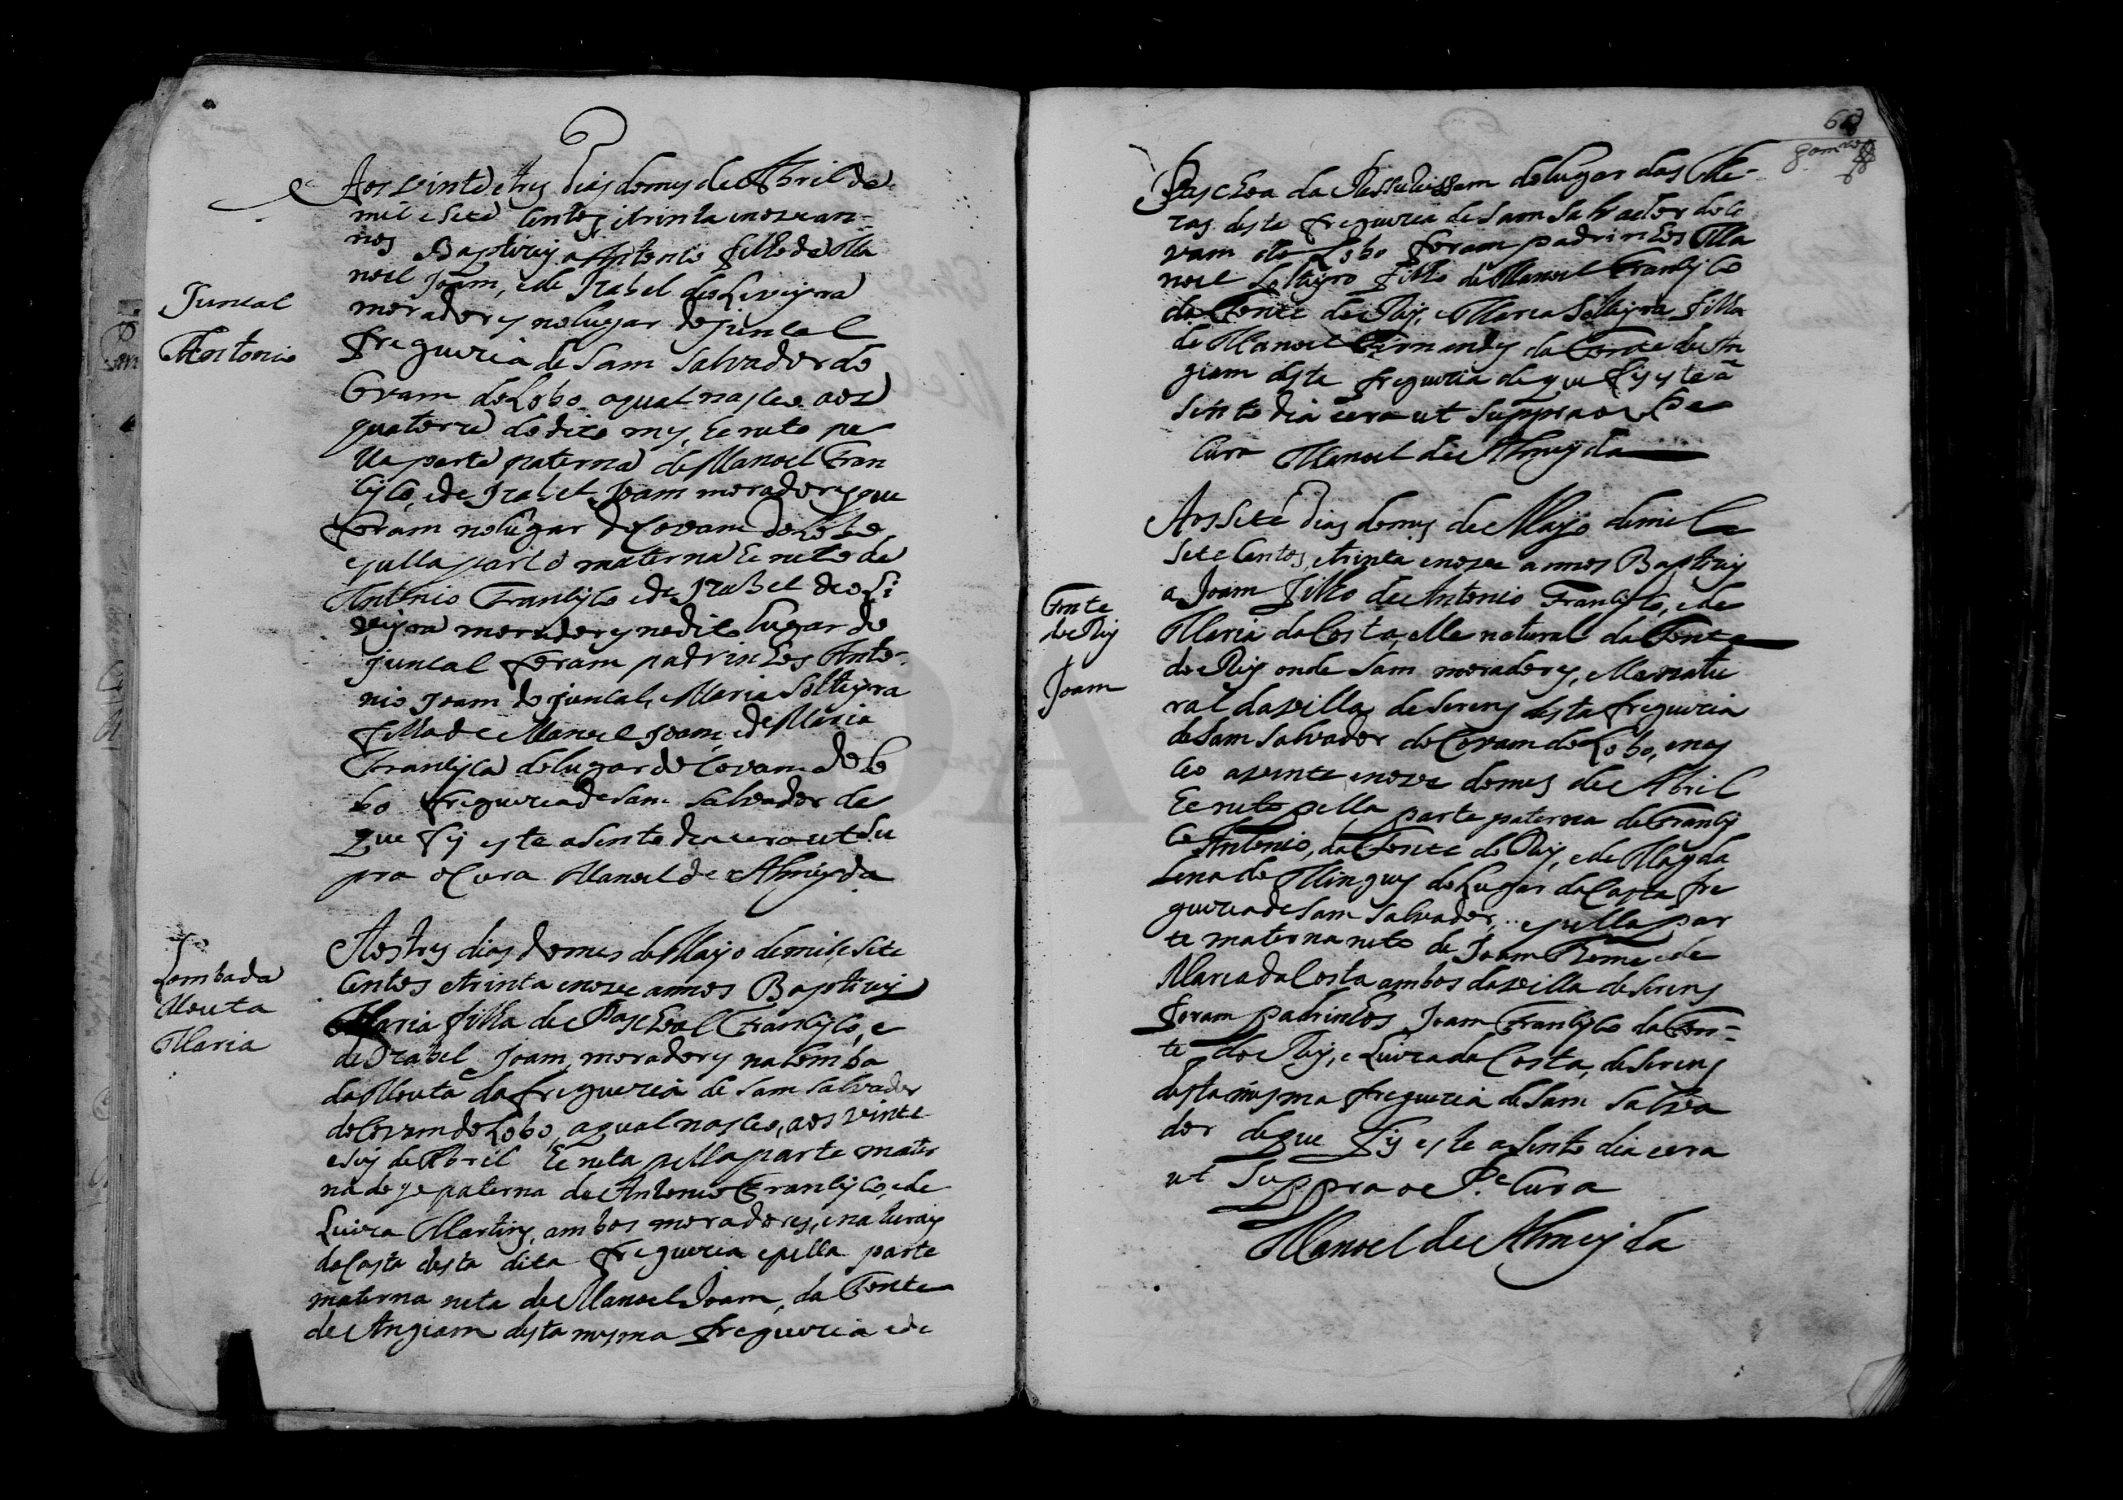 Aos vinte e tres dias do mes de Abril de
mil e sete centos e trinta e nove an-
nos Baptizey a Antonio filho de Ma
noel Joam, e de Izabel de oliveyra
moradores no lugar do juncal
freguezia de Sam Salvador do
Covam do Lobo o qual nasceo aos
quatorze do dito mes, he neto pe
lla parte paterna de Manoel Fran
cisco, e de Izabel Joam moradores que
foram no lugar do Covam do Lobo
e pella parte materna he neto de
Antonio Francisco e de Izabel de oli
veyra moradores no dito lugar do
juncal foram padrinhos Anto-
nio Joam do juncal, e Maria Solteyra
filha de Manoel Joam, e de Maria
Francisca do lugar do Covam do Lo
bo freguezia de Sam Salvador de
que fis este asento dia e era ut su
pra o Cura Manoel de Almeyda
Juncal
Antonio
Aos tres dias do mes de Mayo de mil e sete
centos e trinta e nove annos Baptizey
Maria filha de Paschoal Francisco, e
de Izabel Joam, moradores na Lomba
da Mouta da freguezia de Sam Salvador
do Covam do Lobo, a qual nasceo, aos vinte
e seis de Abril he neta pella parte mater
na digo paterna de Antonio Francisco, e de
Luiza Martins, ambos moradores, e naturais
da Costa desta dita freguezia e pella parte
materna neta de Manoel Joam, da Fonte
de Angiam desta mesma freguezia e de
Lombada
Mouta
Maria
60
Paschoa da Ressureissam do lugar das Me-
ras desta freguezia de Sam Salvador do Co
vam do Lobo foram padrinhos Ma
noel Solteyro filho de Manoel Francisco
da Fonte do Rey, e Maria Solteyra filha
de Manoel Fernandes da Fonte de An
giam desta freguezia de que fis este a
sento dia e era ut suppra o Pe
Cura Manoel de Almeyda
Aos sete dias do mes de Mayo de mil e
sete centos, e trinta e nove annos Baptizey
a Joam filho de Antonio Francisco, e de
Maria da Costa, elle natural da Fonte
do Rey onde sam moradores, e lla natu
ral da villa de Sorens desta freguezia
de Sam Salvador do Covam do Lobo, e nas
ceo a vinte e nove do mes de Abril
he neto pella parte paterna de Francis
co Antonio, da Fonte do Rey, e de Magda
lena de Mingues do Lugar da Costa fre
guezia de Sam Salvador, e pella par
te materna neto de Joam Thome e de
Maria da Costa ambos da villa de Sorens
foram padrinhos Joam Francisco da Fon-
te do Rey, e Luiza da Costa, de Sorens
desta mesma freguezia de Sam Salva
dor de que fis este asento dia e era
ut suppra o Pe Cura
Manoel de Almeyda
Fonte
do Rey
Joam